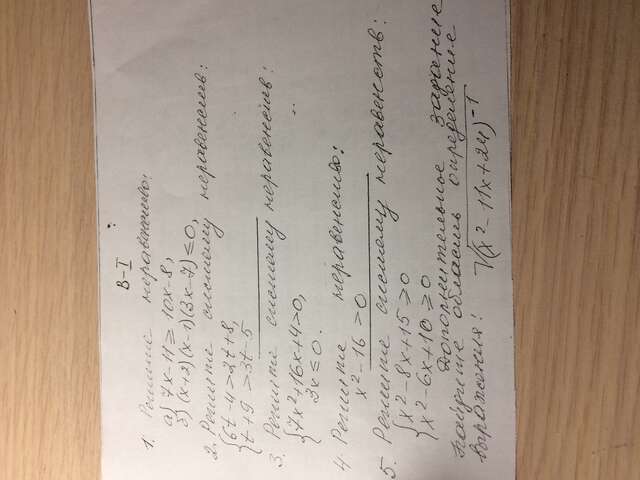 В-I
1. Решите неравенство:
а) 7x-11⩾10x-8,
б) (x+2)(x-1)(3x-7)≤0,
2. Решите систему неравенств:
{6t-4>2t+8,
t+9>3t-5
3. Решите систему неравенств:
{7x²+16x+4>0,
3x≤0.
4. Решите неравенство:
x²-16>0
5. Решите систему неравенств:
{x²-8x+15⩾0
x²-6x+10⩾0
Дополнительное задание
Найдите область определение
выражения! √(x²-11x+24)⁻¹